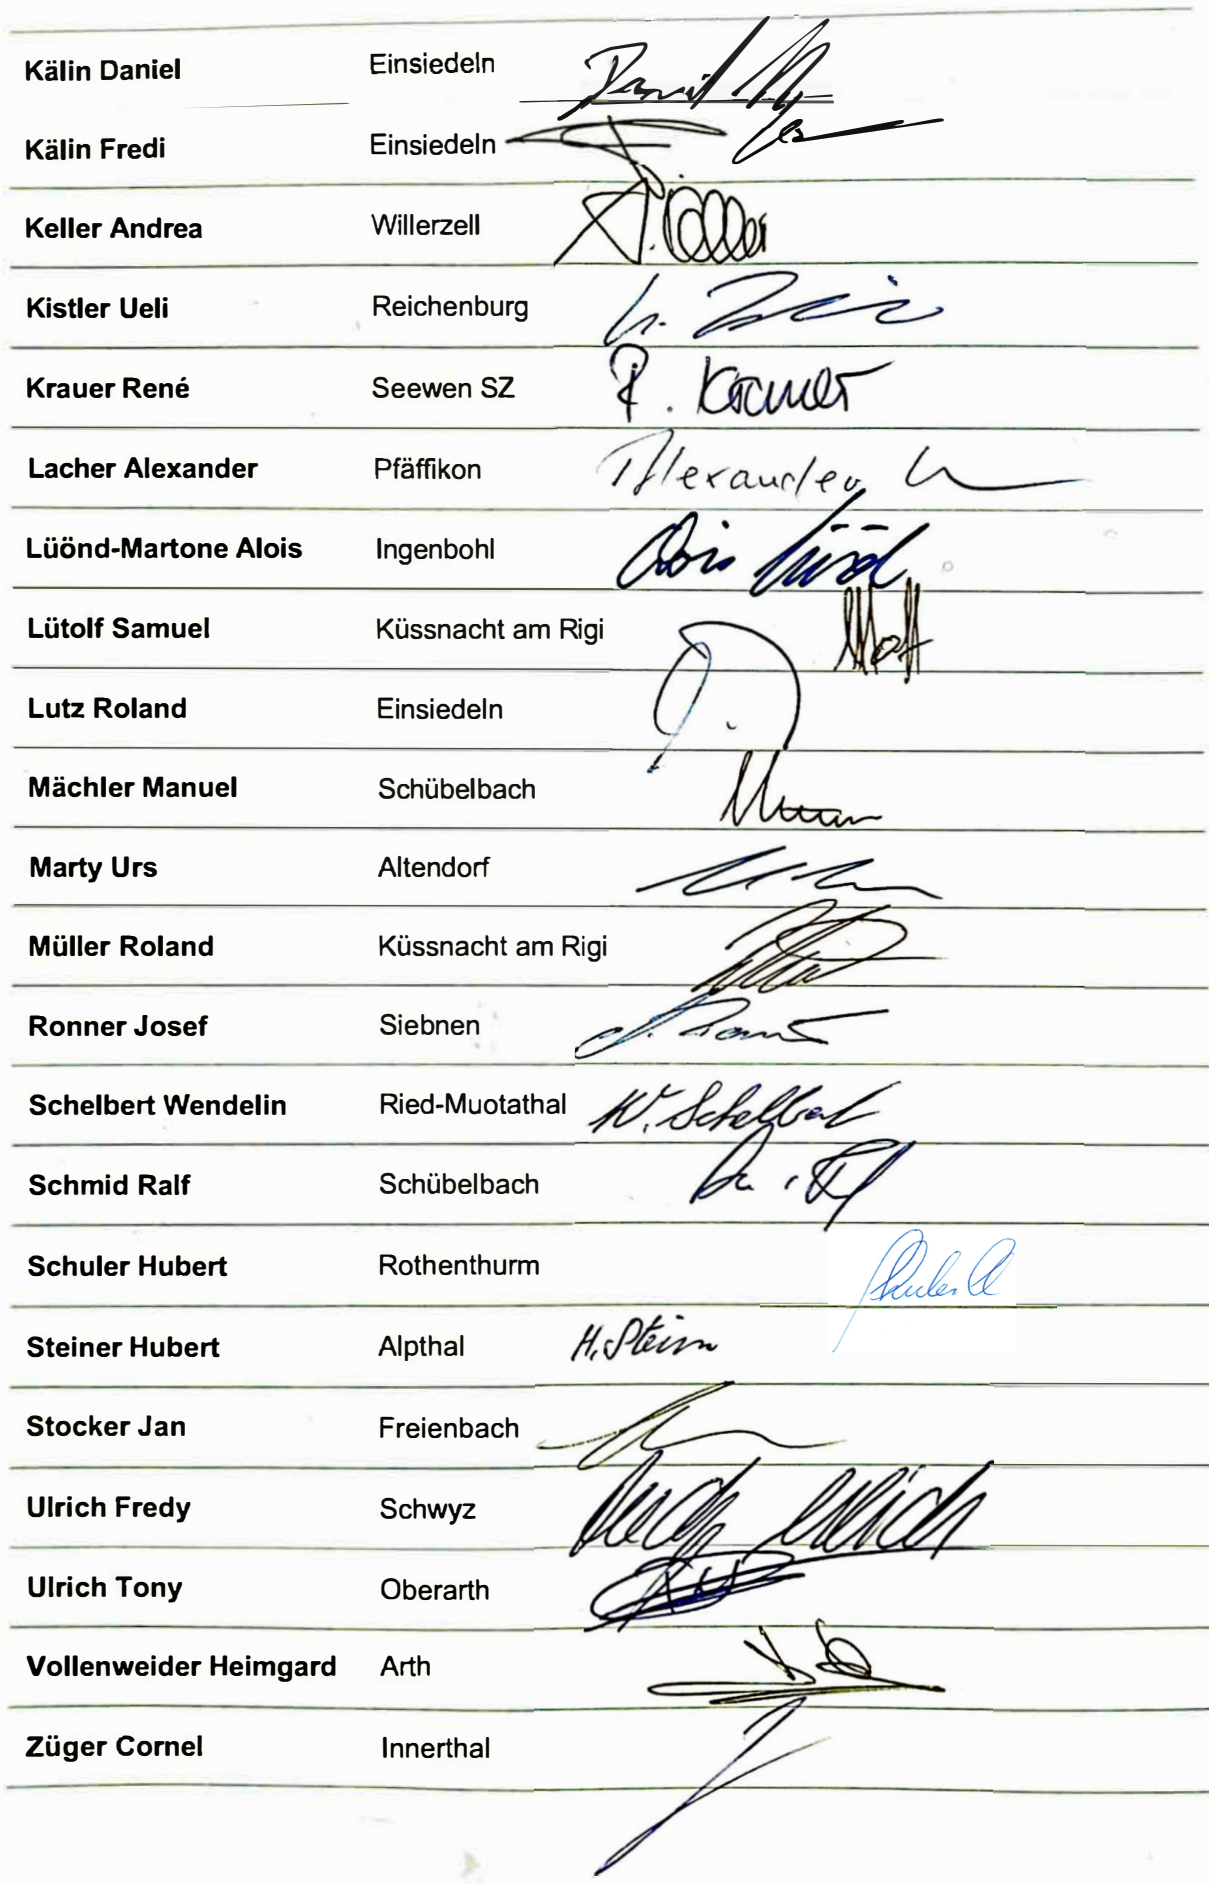 Kälin Daniel Einsiedeln Daniel
Kälin Fredi Einsiedeln
Keller Andrea Willerzell A. Keller
Kistler Ueli Reichenburg
Krauer René Seewen SZ R. Krauer
Lacher Alexander Pfäffikon Alexander
Lüönd-Martone Alois Ingenbohl Alois Lüönd
Lütolf Samuel Küssnacht am Rigi
Lutz Roland Einsiedeln
Mächler Manuel Schübelbach
Marty Urs Altendorf
Müller Roland Küssnacht am Rigi
Ronner Josef Siebnen
Schelbert Wendelin Ried-Muotathal W. Schelbert
Schmid Ralf Schübelbach
Schuler Hubert Rothenthurm Schuler H
Steiner Hubert Alpthal H. Steiner
Stocker Jan Freienbach
Ulrich Fredy Schwyz Fredy Ulrich
Ulrich Tony Oberarth
Vollenweider Heimgard Arth
Züger Cornel Innerthal